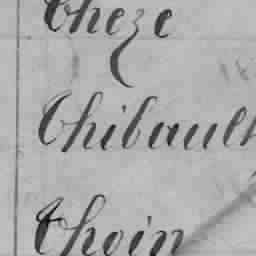 Theze
Thibault
Thoin